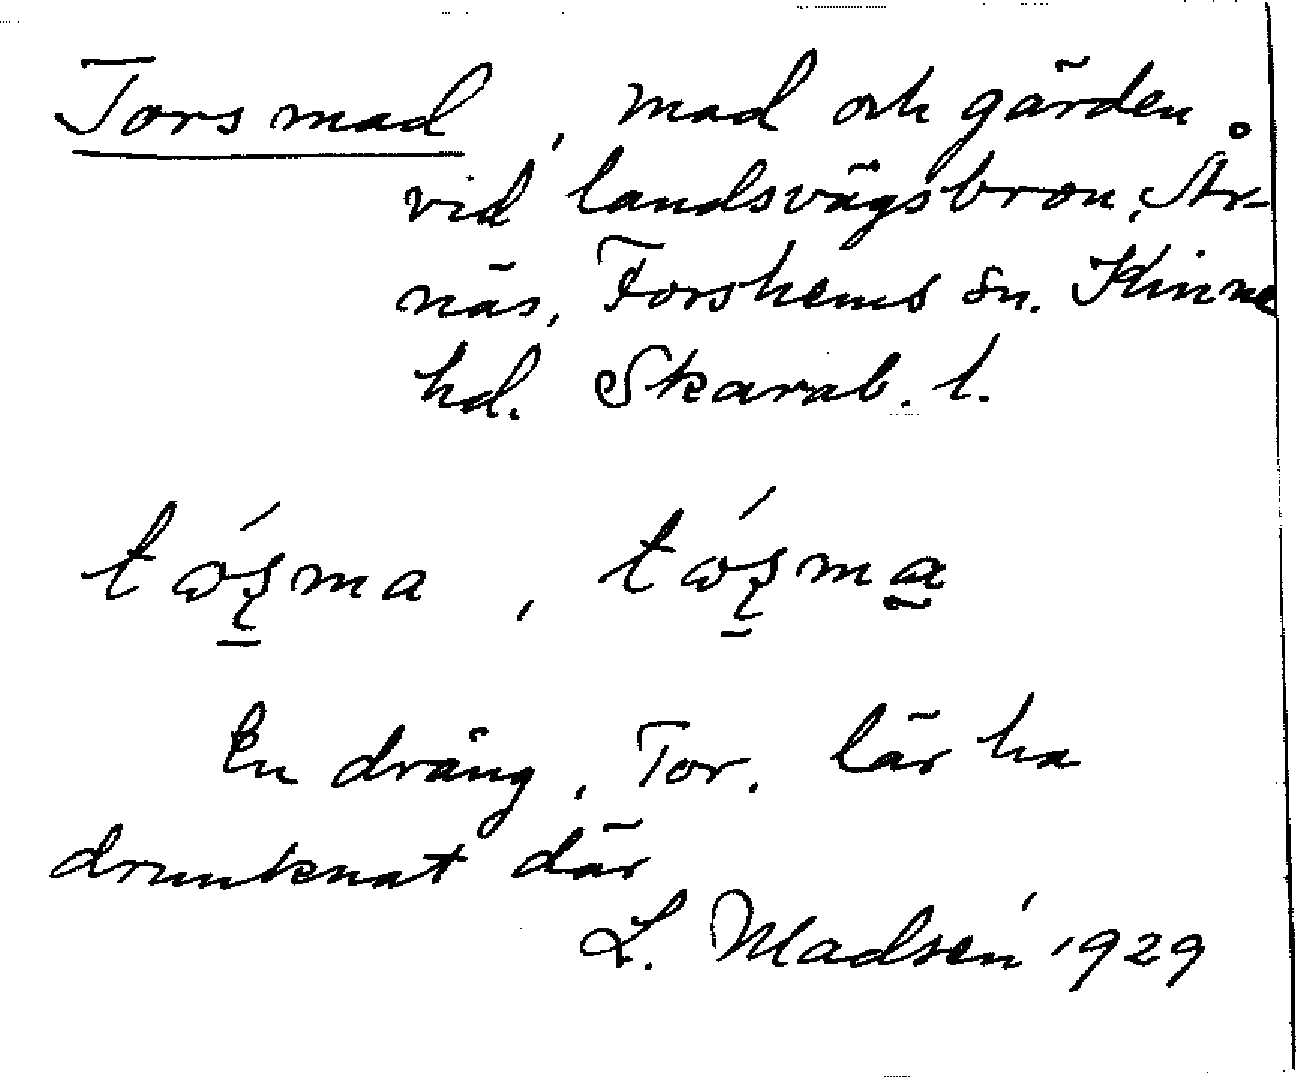 Torsmad, mad och gärden
vid landsvägsbron, År-
näs, Forshems sn. Kinne
hd. Skarab. l.
tɷ́ʂma, tɷ́ʂma̰
En dräng, Tor, lär ha
drunknat där
L. Madsén 1929